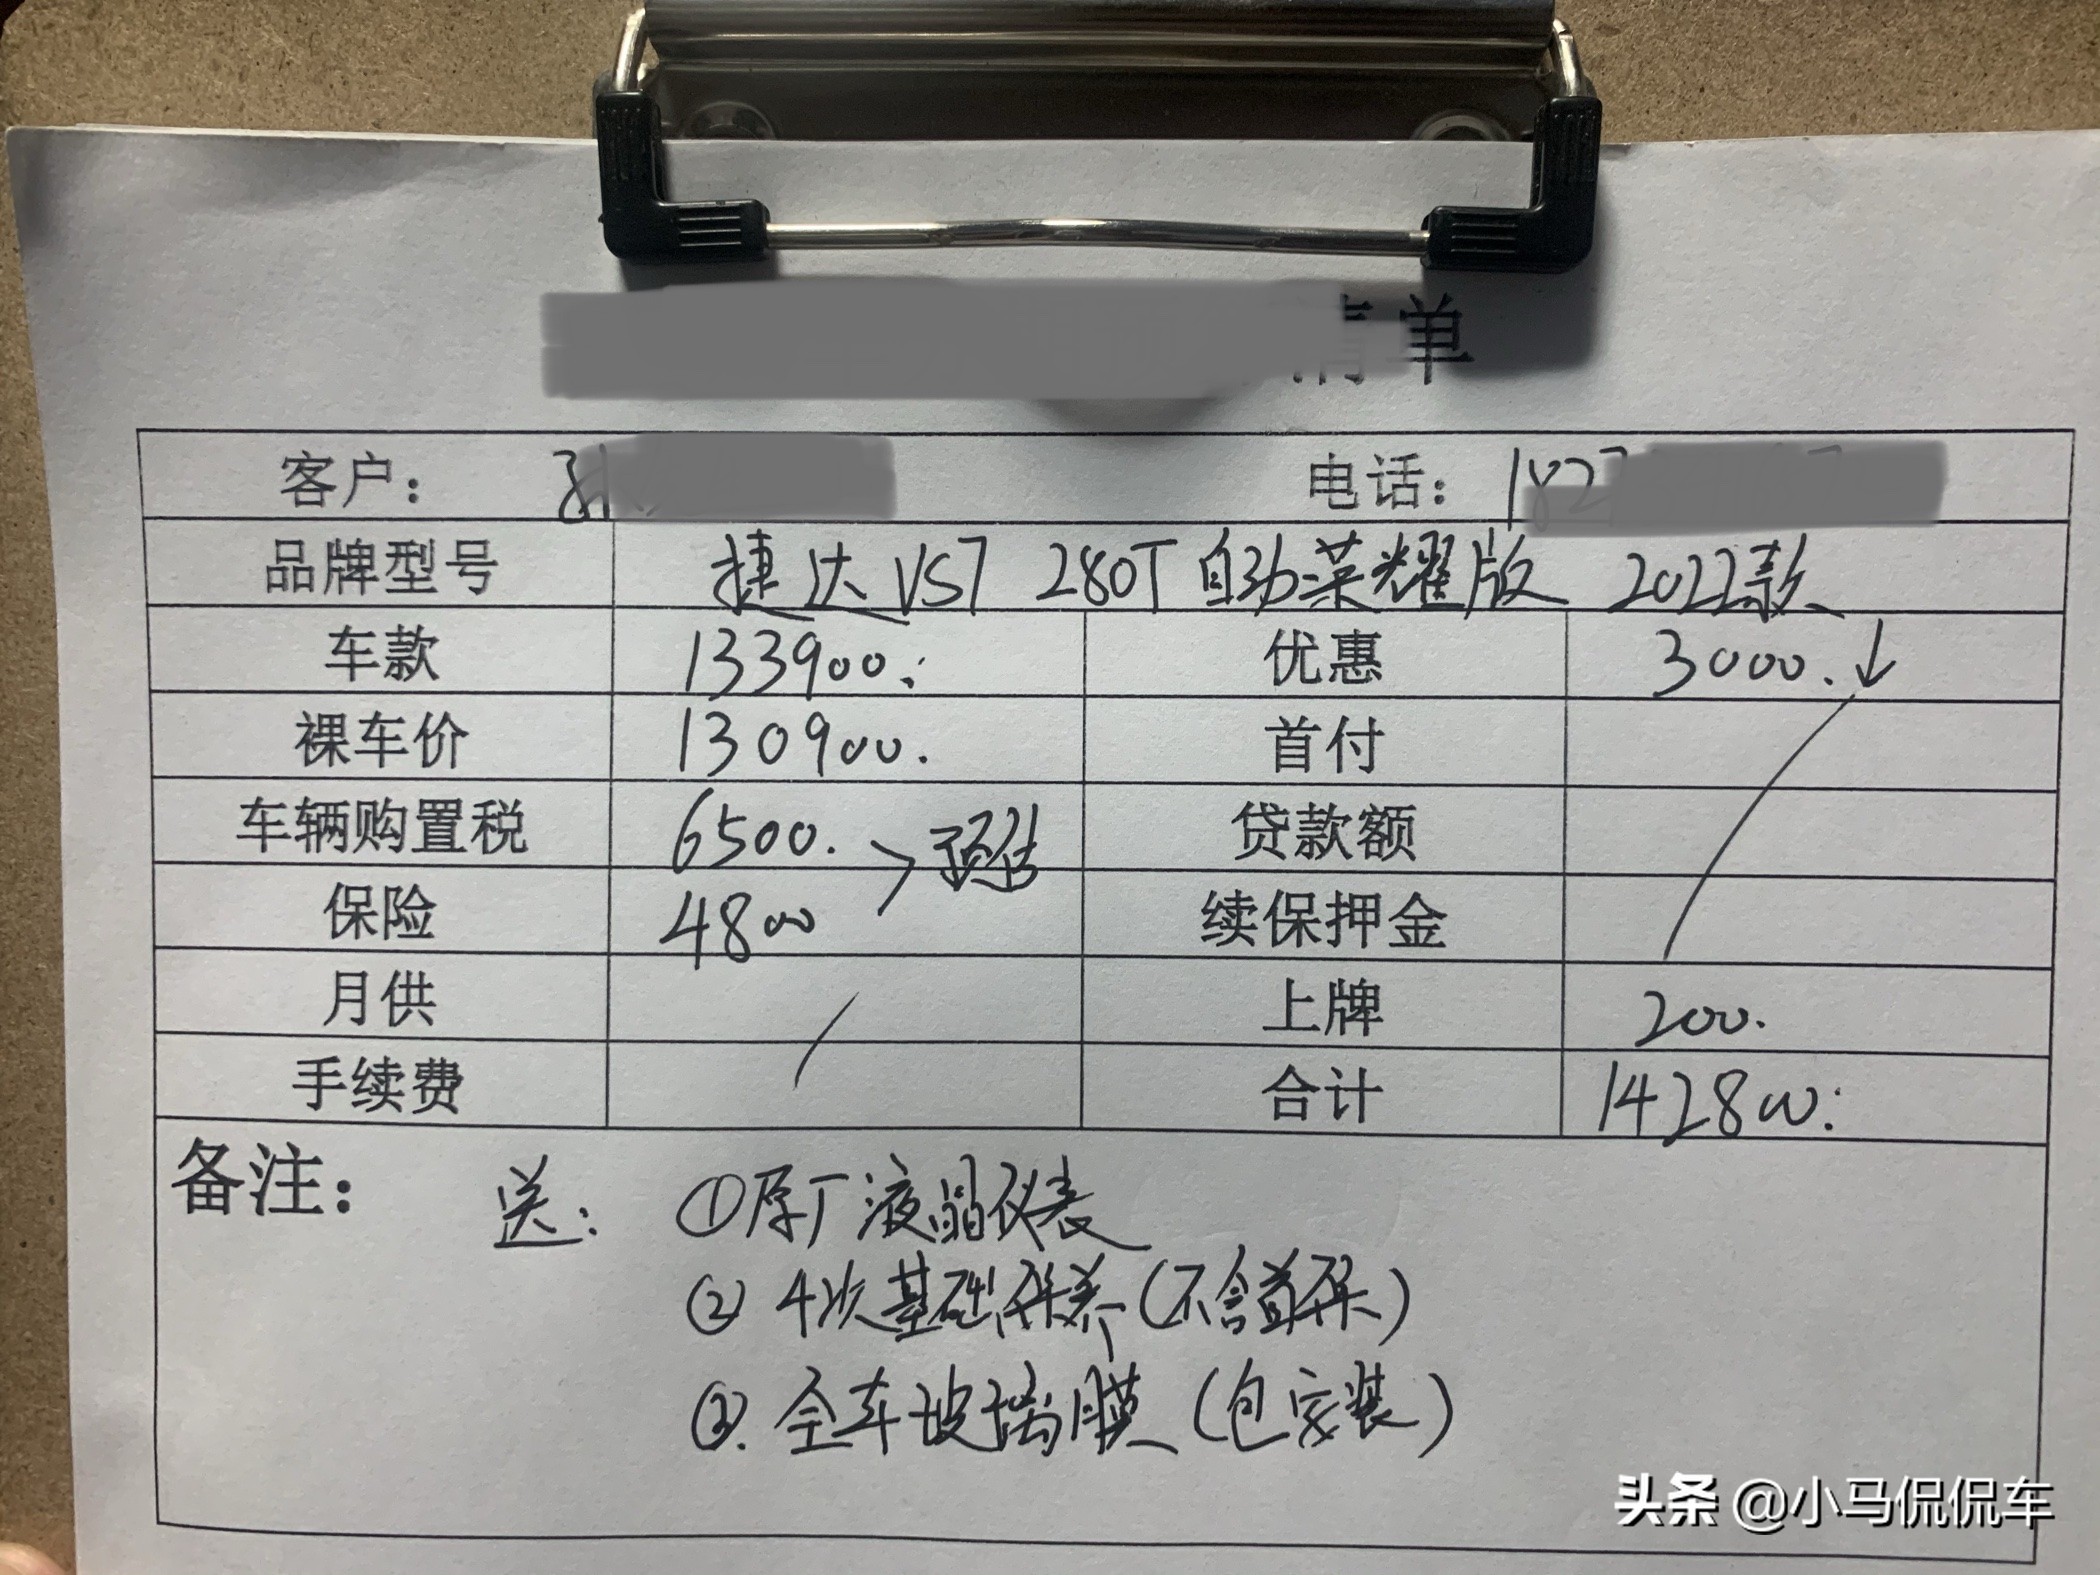 清单
客户： 电话： 182
品牌型号 捷达VS7 280T自动荣耀版 2022款
车款 133900. 优惠 3000.↓
裸车价 130900. 首付
车辆购置税 6500. 预估 贷款额
保险 4800 续保押金
月供 上牌 200.
手续费 合计 142800.
备注： 送： ①原厂液晶仪表
② 4次基础保养（不含首保）
③. 全车玻璃膜（包安装）
头条 @小马侃侃车